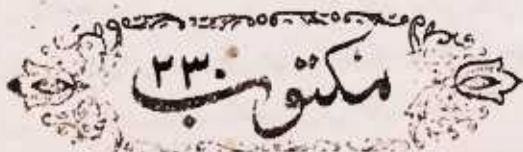 مکتوب ۲۳۰